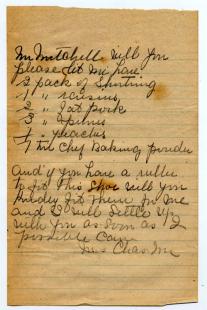 Mr Mitchell will you
please let me have
2 pack of Shortning
1 " raisins
2 " fat pork
3 " prunes
1 " peaches
1 tin Chef Baking powder
and if you have a rubber
to fit this Shoe will you
kindly fit them for me
and I will Settle up
with you as soon as I
possible can
Mrs Chas